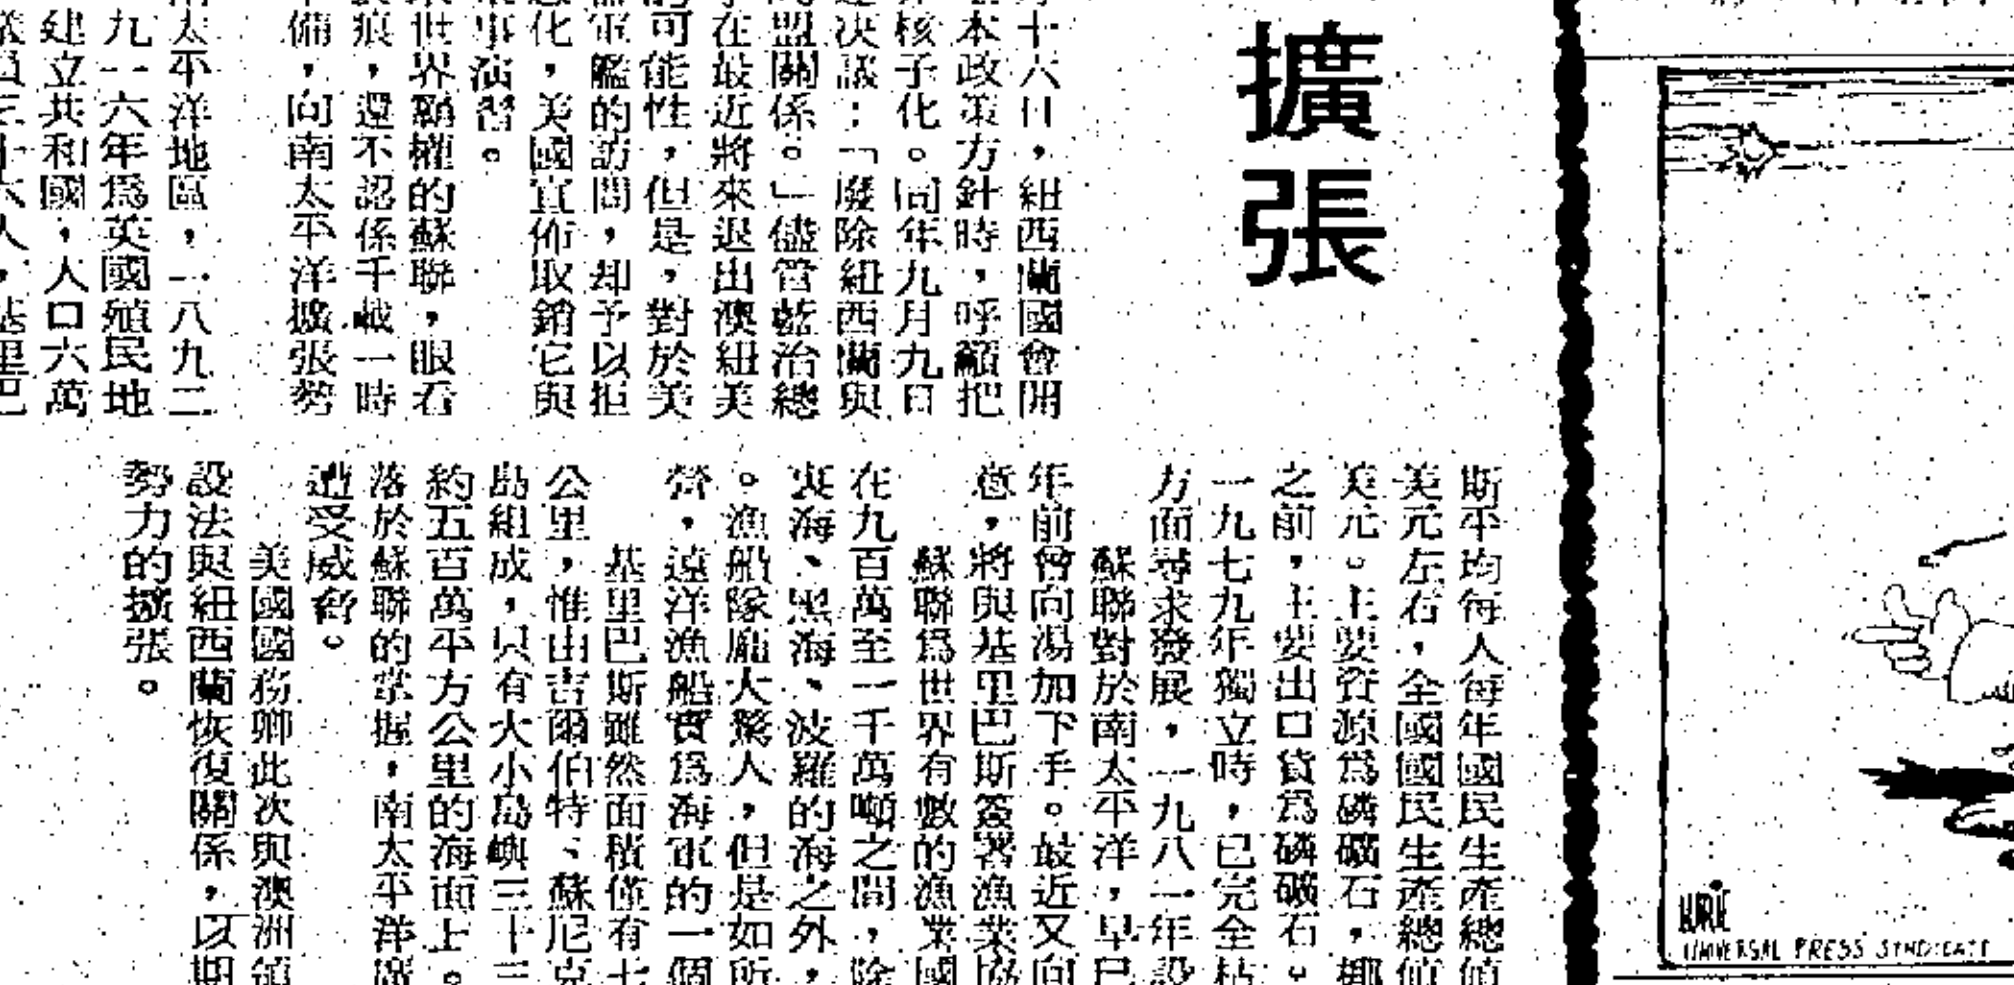 擴張
十六日，紐西蘭國會開
本政策方針時，呼籲把
核子化。同年九月九日
決議：「廢除紐西蘭與
盟關係。」儘管藍治總
在最近將來退出澳紐美
可能性，但是，對於美
軍艦的訪問，却予以拒
化，美國宣佈取銷它與
事演習。
世界霸權的蘇聯，眼看
痕，還不認係千載一時
備，向南太平洋擴張勢
太平洋地區，一八九二
九一六年爲英國殖民地
建立共和國，人口六萬
人，基里巴
斯平均每人每年國民生產總值
美元左右，全國國民生產總值
美元。主要資源爲磷礦石，椰
之前，主要出口貨爲磷礦石。
一九七九年獨立時，已完全枯
方面尋求發展，一九八一年設
蘇聯對於南太平洋，早已
年前曾向湯加下手。最近又向
意，將與基里巴斯簽署漁業協
蘇聯爲世界有數的漁業國
在九百萬至一千萬噸之間，除
裏海、黑海、波羅的海之外，
。漁船隊龐大驚人，但是如所
營，遠洋漁船實爲海軍的一個
基里巴斯雖然面積僅有七
公里，惟由吉爾伯特、蘇尼克
島組成，只有大小島嶼三十三
約五百萬平方公里的海面上。
落於蘇聯的掌握，南太平洋廣
遭受威脅。
美國國務卿此次與澳洲領
設法與紐西蘭恢復關係，以期
勢力的擴張。
LURIE
UNIVERSAL PRESS SYNDICATE